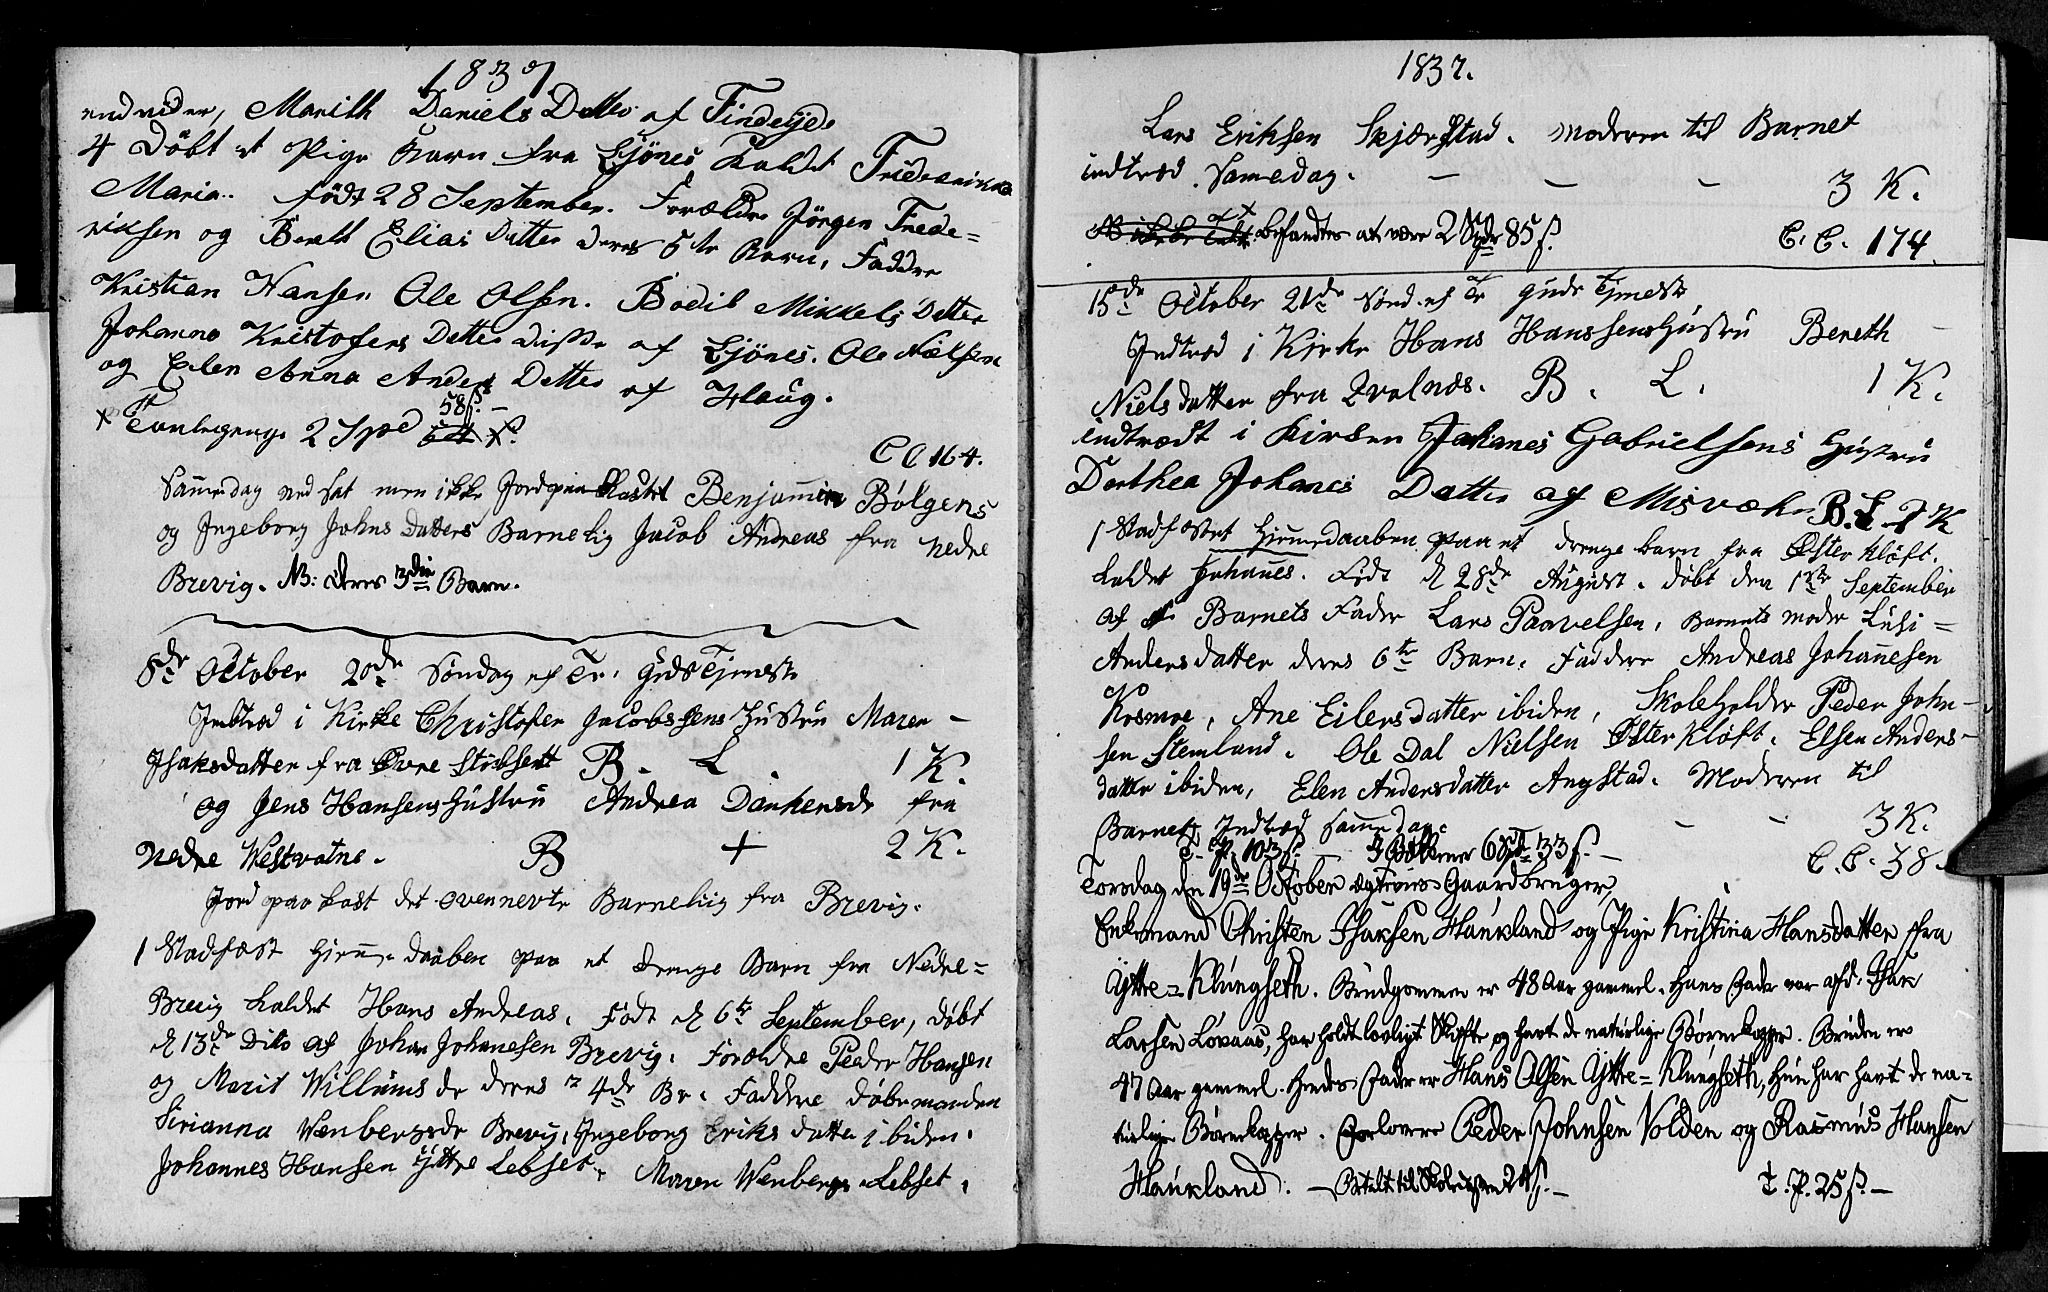 1837
endvider, Marith Daniels Datter af Findejde
4 Döbt et Pige Barn fra Ljönes Kaldt Frideanikka
Maria. født 28 September. Forældre Jörgen Frede=
riksen og Bereth Elias Datter deres 5te Barn, Faddre
Kristian Hansen Ole Olsen. Bodil Mikkels Datter
Johanna Kristofers Datter disse af Ljönes. Ole Nielsen
og Elen Anna Anders Datter af Haug.
58ß. -
x Tavlepenge 2 Spd 64 ß.
C C 164.
Sammedag nedsat men ikke Jordpaakastet Benjamin Bölgens
og Ingeborg Johns Datters Barnelig Jacob Andreas fra Nedre
Brevig. NB: deres 3die Barn.
8de October 20de Søndag ef Tr. Guds Tjeneste
Indtræd i Kirke Christofer Jacobssens Hustru Maren -
Isaksdatter fra Øvre B. L. 1 K.
og Jens Hansens Hustru Andrea Dankersdr fra
Nedre Westvatne. B + 2 K.
Jord paa kast det ovennevte Barneliig fra Brevig.
1 Stadfæst Hjemedaaben paa et Drenge Barn fra Nedre=
Brevig kaldet Hans Andreas. Født d 6te September, døbt
d 13de Dito af Johan Johanesen Brevig. Forældre Peder Hansen
og Marit Willumsdr deres 4de Br. Faddere døbemanden
Sirianna Wenbergsdr Brevig, Ingeborg Eriksdatter ibiden.
Johannes Hansen Ijttre Lebset. Maren Wenbergs Lebset.
1837.
Lars Eriksen Skjærstad. Moderen til Barnet
indtræd. Samedag. - - - 3 K.
befandtes at være 2 Spdr 85 ß. C. C. 174.
15de October 21de Sønd. ef Tr Guds Tjeneste
Indtræd i Kirke Hans Hanssens Hustru Bereth -
Nielsdatter fra Qvalnæs. B. L. 1 K.
indtrædt i Kirken Johanes Gabrielsens Hustru
Dorthea Johanes Datter af Misvæhr B. L 2 K
1 Stadfæstet Hjemmedaaben paa et drenge barn fra Østerkløft.
kaldet Johannes. Født d 28de August. døbt den 1ste September
af Barnets Fader Lars Paavelsen, Barnets moder Lusi=
Andersdatter deres 6te Barn. Faddere Andreas Johannesen
Kosmoe, Ane Eilersdatter ibiden, Skoleholder Peder John-
sen Stemland. Ole Dal Nielsen Østerkløft. Elsen Anders-
datter ibiden, Elen Andersdatter Angstad. Moderen til
Barnet Indtræd Sammedag. - - 3 K.
T. P. 103 ß. 6 Spd 33 ß. - C. C. 38.
Torsdag den 19de October ægtevies Gaardbruger,
Enkemand Christen Isaksen Haukland og Pige Kristina Hansdatter fra
Ijttre=Klungseth. Brudgommen er 48 Aar gammel. Hans Fader var afd. Isak
Larsen Løvaas, har holdt lovligt Skifte og havt de naturlige Børnekopper. Bruden er
47 Aar gammel. Hendes Fader er Hans Olsen Ijttre=Klungseth, Hun har havt de na=
turlige Børnekopper. Forlovere Peder Johnsen Volden og Rasmus Hansen
Haukland. - Betalt til Skolekassen 24 ß. - T. P. 25 ß. -